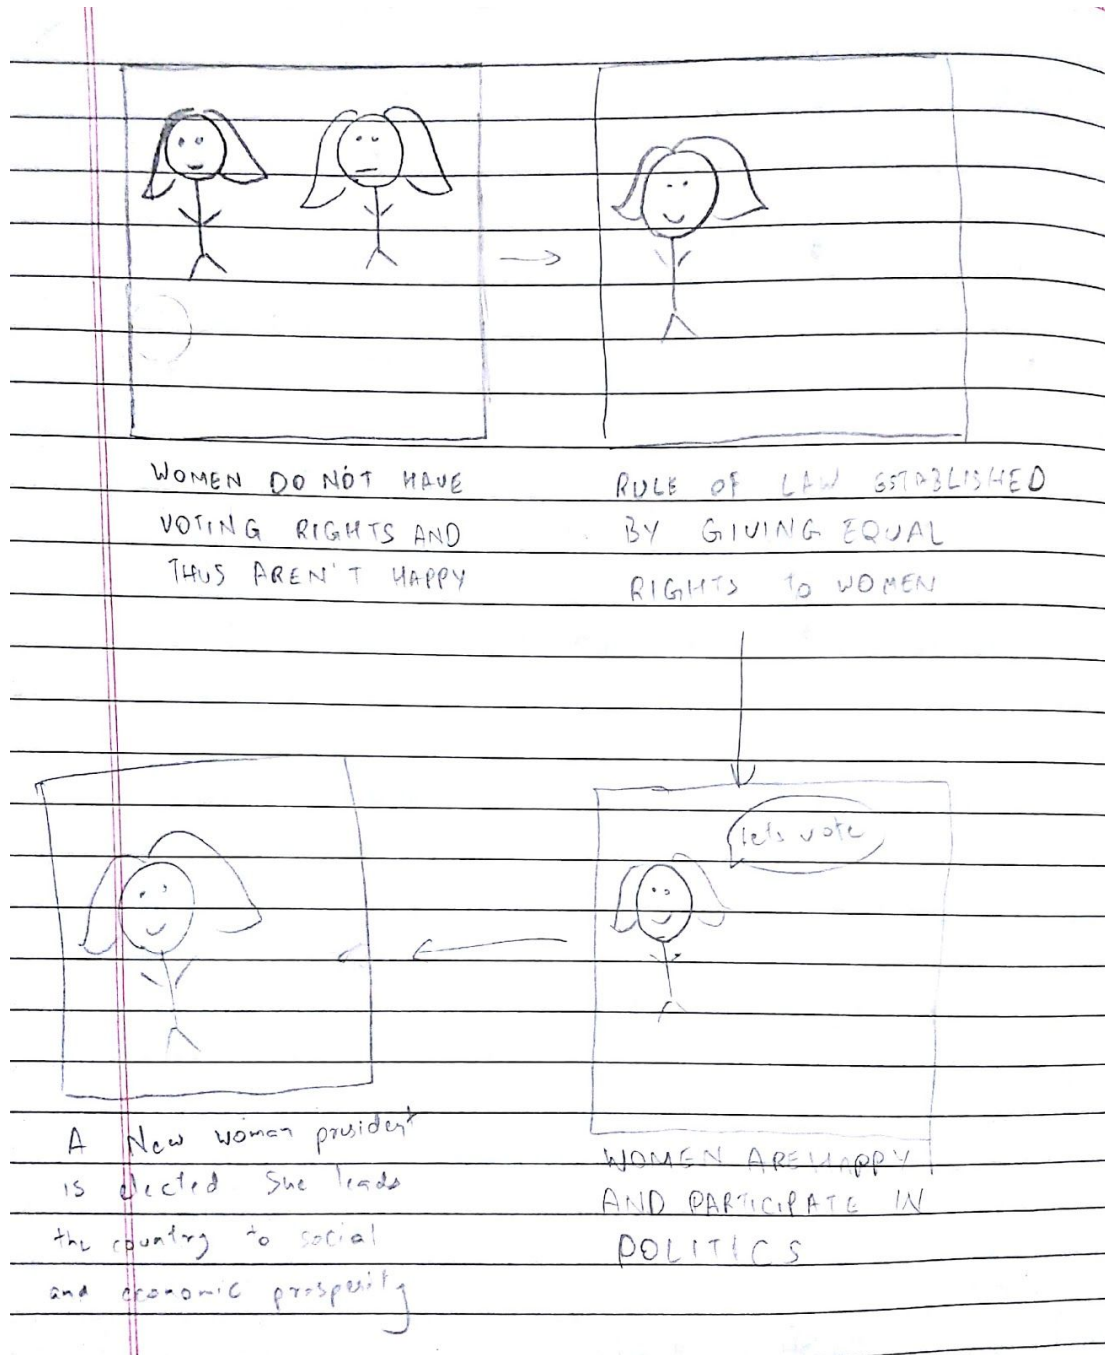 WOMEN DO NOT HAVE
VOTING RIGHTS AND
THUS AREN'T HAPPY
RULE OF LAW ESTABLISHED
BY GIVING EQUAL
RIGHTS to WOMEN
lets vote
WOMEN ARE HAPPY
AND PARTICIPATE IN
POLITICS
A New woman president
is elected She leads
the country to social
and economic prosperity